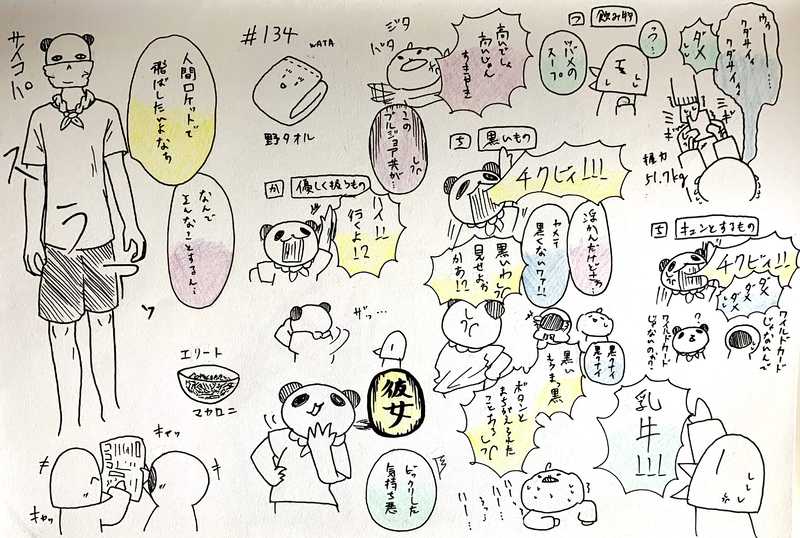 サイコパ
ス
ラ
ー
ッ
人間ロケットで
飛ばしたいよなぁ
なんで
そんなことするん…
#134
WATA
野タオル
エリート
マカロニ
キャッ
キャッ
か
優しく扱うもの
ハイ!!
行くよ!?
ザッ…
彼女
ビックリした
気持ち悪
ジタ
バタ
高いでしょ
高いじゃん
この
ブルジョア共が…
つ
飲み物
うっ…
ツバメの
スープ
ダメ
ウィ
クダサイィィ
クダサィィィ…
握力
51.7kg
ち
黒いもの
チクビィ!!!
浮かんだけどさぁ
ヤメテ
黒くないワァ!!
黒いわし
見せよか
かぁ!?
黒い
まっ黒
黒クナイ
黒クナイ
ボタンと
まちがえられた
ことあるし
ハー…
ハー…
ハー…
ち
キュンとするもの
チクビィ!!
ダメ
ダメ
ダメ
ワイルドカード
じゃないんで
ワイルドカード
じゃないのか?
乳牛!!!